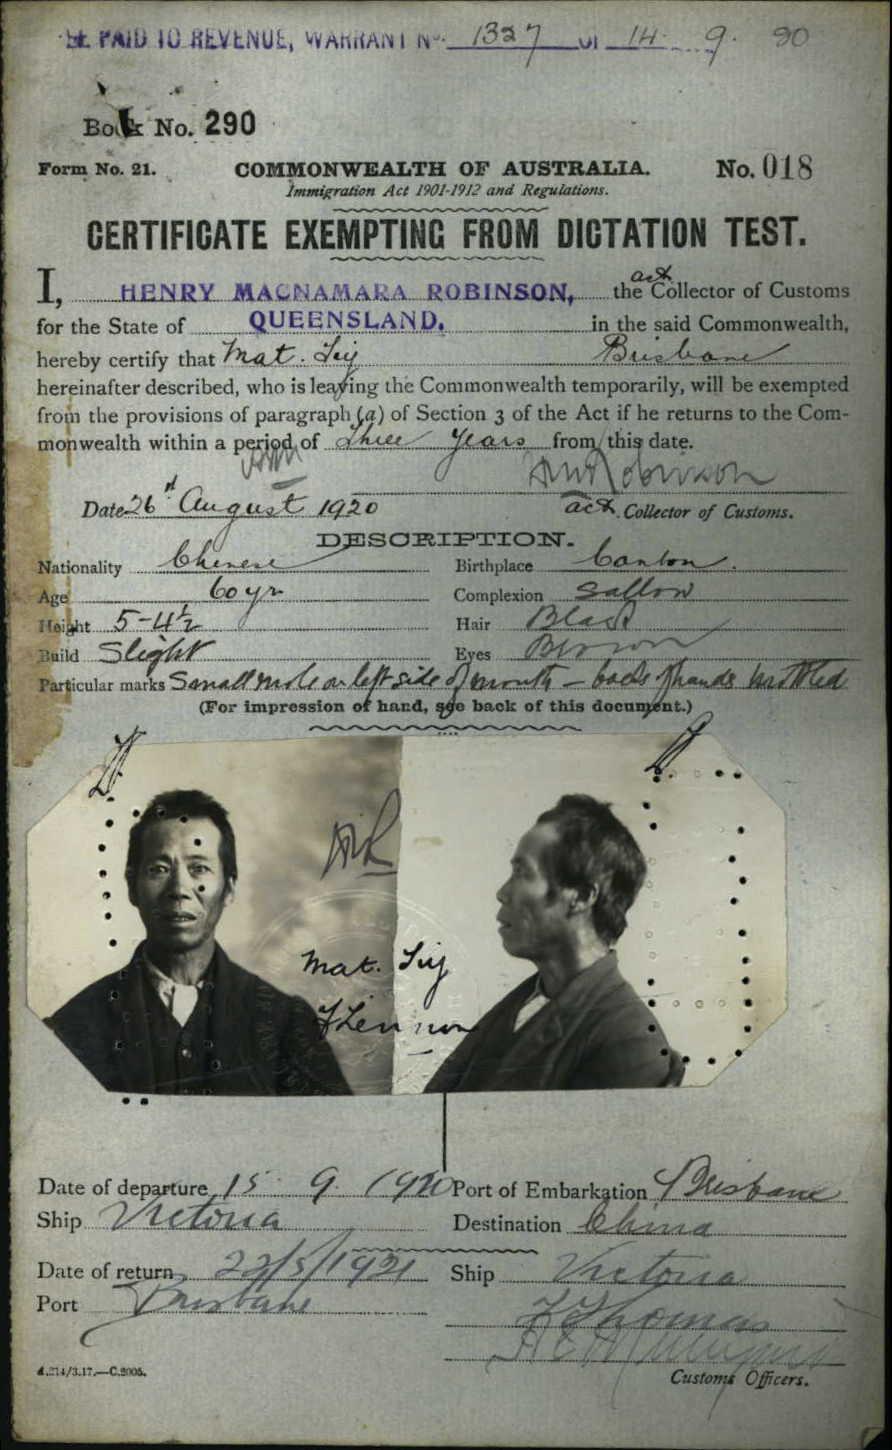 BE PAID TO REVENUE, WARRANT No. 1327 of 14. 9. 20
Book No. 290
Form No. 21. COMMONWEALTH OF AUSTRALIA. No. 018
Immigration Act 1901-1912 and Regulations.
CERTIFICATE EXEMPTING FROM DICTATION TEST.
act
I, HENRY MACNAMARA ROBINSON, the Collector of Customs
for the State of QUEENSLAND, in the said Commonwealth,
hereby certify that Mat. Brisbane
hereinafter described, who is leaving the Commonwealth temporarily, will be exempted
from the provisions of paragraph (a) of Section 3 of the Act if he returns to the Com-
monwealth within a period of Three Years from this date.
HM Robinson
Date 26 August 1920 act. Collector of Customs.
DESCRIPTION.
Nationality Chinese Birthplace Canton.
Age 60 yrs Complexion Sallow
Height 5-4½ Hair Black
Build Slight Eyes Brown
Particular marks Small mole on left side of mouth - backs of hands mottled
(For impression of hand, see back of this document.)
Mat.
Date of departure 15. 9. 1920 Port of Embarkation Brisbane
Ship Victoria Destination China
Date of return 22/5/1921 Ship Victoria
Port Brisbane
Thomas
Customs Officers.
A.214/3.17.—C.2005.